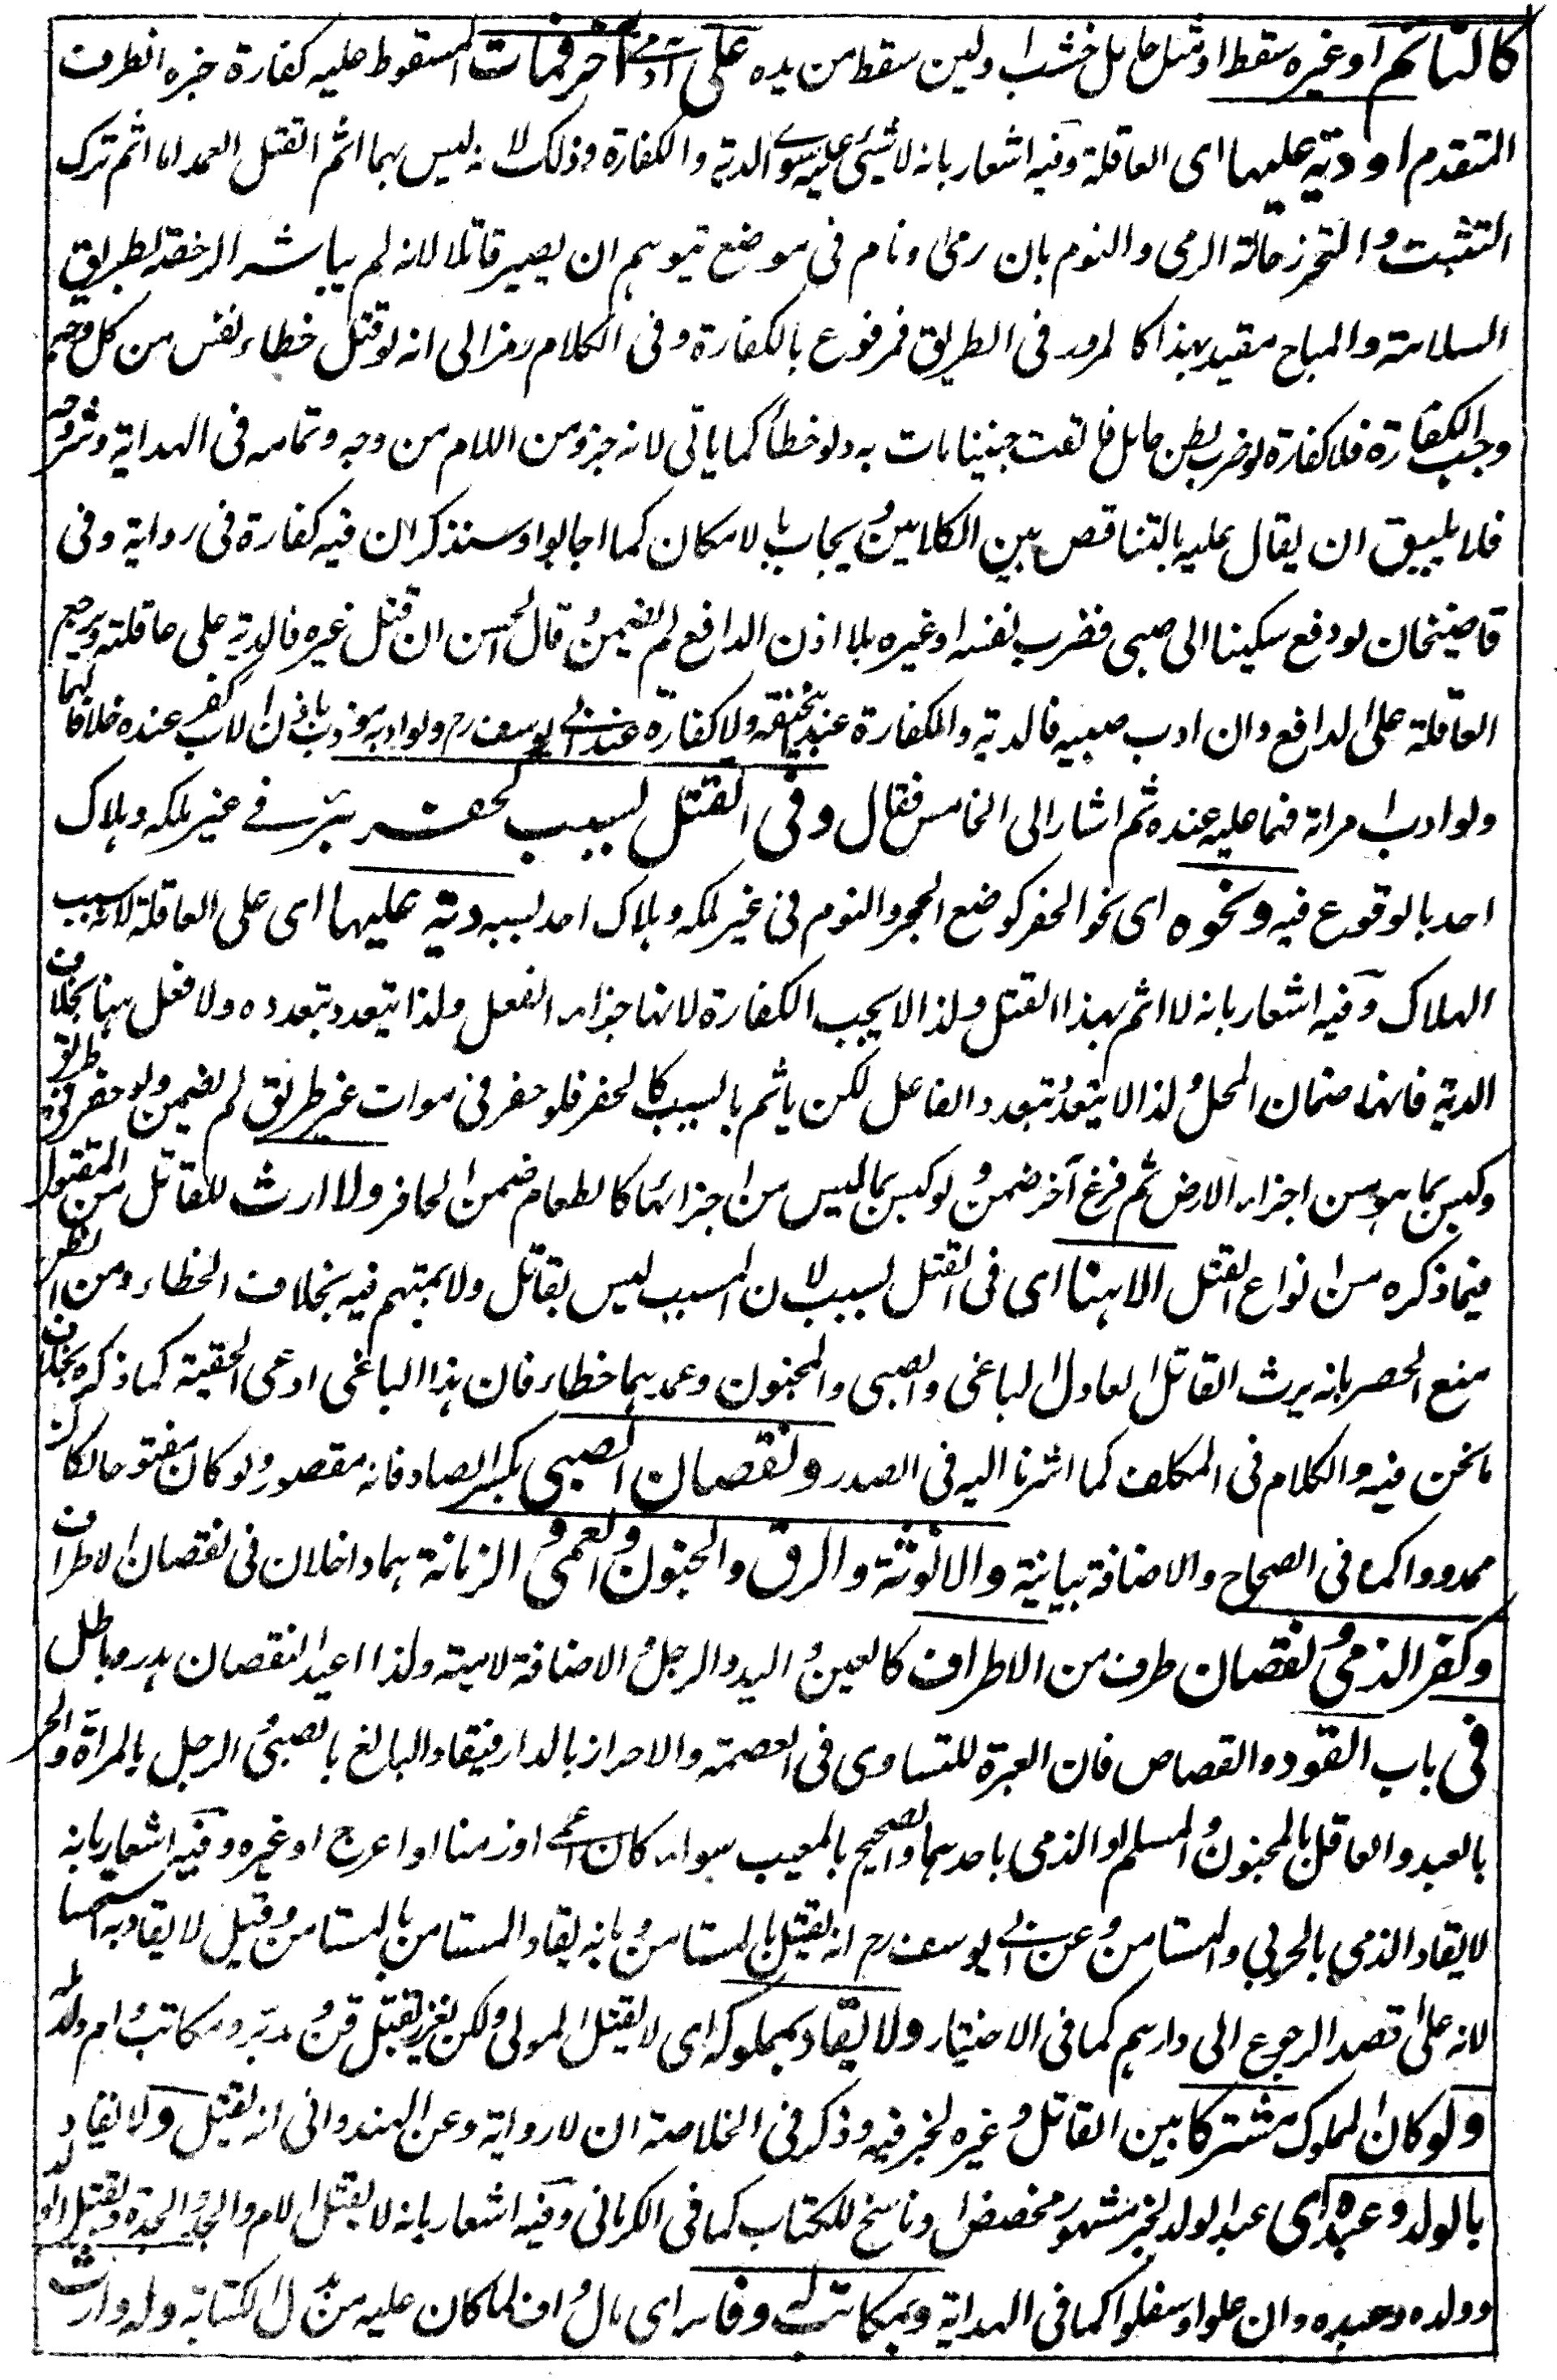 كالنائم او غيره سقط او مثل حامل خشب او لبن سقط من يده على آدمي آخر فمات المسقوط عليه كفارة خبره الظرف
المتقدم او دية عليها اى العاقلة وفيه اشعار بانه لا شيئ عليه سوى الدية والكفارة وذلك لانه ليس بهما اثم القتل العمد اما اثم ترك
التثبت والتحرز حالة الرمى والنوم بان رمى ونام فى موضع يتوهم ان يصير قاتلا لانه لم يباشر الرخصة بطريق
السلامة والمباح مقيد بهذا كالمرور فى الطريق فمرفوع بالكفارة وفى الكلام رمز الى انه لو قتل خطاء نفس من كل وجه
وجب الكفارة فلا كفارة لو ضرب بطن حامل فالقت جنينا مات به ولو خطأ كما ياتى لانه جزء من الام من وجه وتمامه فى الهداية وشروحه
فلا يليق ان يقال عليه بالتناقض بين الكلامين ويجاب بالامكان كما اجابوا وسنذكر ان فيه كفارة فى رواية وفى
قاضيخان لو دفع سكينا الى صبى فضرب نفسه او غيره بلا اذن الدافع لم يضمن وقال الحسن ان قتل غيره فالدية على عاقلته ويرجع
العاقلة على الدافع وان ادب صبيه فالدية والكفارة عند ابيحنيفة ولا كفارة عند ابى يوسف رح ولو ادبه مؤدب باذن الاب كفر عنده خلافا لهما
ولو ادب امراته فهما عليه عنده ثم اشار الى الخامس فقال وفى القتل بسبب كحفر بئر فى غير ملكه وهلاك
احد بالوقوع فيه ونحوه اى نحو الحفر كوضع الحجر والنوم فى غير ملكه وهلاك احد بسببه دية عليها اى على العاقلة لانه سبب
الهلاك وفيه اشعار بانه لا اثم بهذا القتل ولذا لا يجب الكفارة لانها جزاء الفعل ولذا يتعدد بتعدده ولا فعل ههنا بخلاف
الدية فانها ضمان المحل ولذا لا يتعدد بتعدد الفاعل لكن ياثم بالسبب كالحفر فلو حفر فى موات غير طريق لم يضمن ولو حفر فى طريق
وكبس بما هو من اجزاء الارض ثم فرغ آخر ضمن ولو كبس بما ليس من اجزائها كالطعام ضمن الحافر ولا ارث للقاتل من المقتول
فيما ذكره من انواع القتل الا ههنا اى فى القتل بسبب لان المسبب ليس بقاتل ولا يتهم فيه بخلاف الخطاء ومن الظن
منع الحصر بانه يرث القاتل العادل الباغى والصبى والمجنون وعمدهما خطاء فان هذا الباغى ادعى الحقية كما ذكره بخلاف
ما نحن فيه والكلام فى المكلف كما اشرنا اليه فى الصدر ونقصان الصبى بكسر الصاد فانه مقصور ولو كان مفتوحا لكان
ممدودا كما فى الصحاح والاضافة بيانية والانوثة والرق والجنون والعمى والزمانة هما داخلان فى نقصان الاطراف
وكفر الذمى ونقصان طرف من الاطراف كالعين واليد والرجل والاضافة لامية ولذا اعيد النقصان هدر وباطل
فى باب القود والقصاص فان العبرة للتساوى فى العصمة والاحراز بالدار فيقاد البالغ بالصبى والرجل بالمراة والحر
بالعبد والعاقل بالمجنون والمسلم والذمى باحدهما والصحيح بالمعيب سواء كان اعمى او زمنا او اعرج او غيره وفيه اشعار بانه
لا يقاد الذمى بالحربى والمستامن وعن ابى يوسف رح انه يقتل بالمستامن وبانه يقاد المستامن بالمستامن وقيل لا يقاد به استحسانا
لانه على قصد الرجوع الى دارهم كما فى الاختيار ولا يقاد بمملوكه اى لا يقتل المولى ولكن يعزر بقتل قن ومدبر ومكاتب وام ولد له
ولو كان المملوك مشتركا بين القاتل وغيره لخبر فيه وذكر فى الخلاصة ان لا رواية وعن الهندوانى انه يقتل ولا يقاد
بالولد وعبده اى عبد الولد لخبر مشهور مخصص او ناسخ للكتاب كما فى الكرمانى وفيه اشعار بانه لا يقتل الام والجد والجدة ويقتل الولد
وولده وعبده وان علوا او سفلوا كما فى الهداية وبمكاتب له وفاء اى مال واف لما كان عليه من بدل الكتابة وله وارث